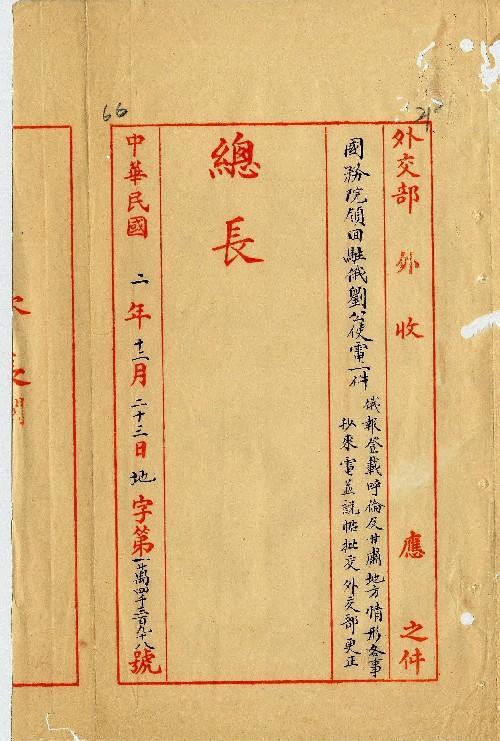 66
外交部 外 收 應 之件
國務院領回駐俄劉公使電一件
俄報登載呼倫及甘肅地方情形各事
抄來電並說帖批交外交部更正
總長
中華民國 二 年 十二 月 二十三 日 地 字第 一萬四千三百九十八 號